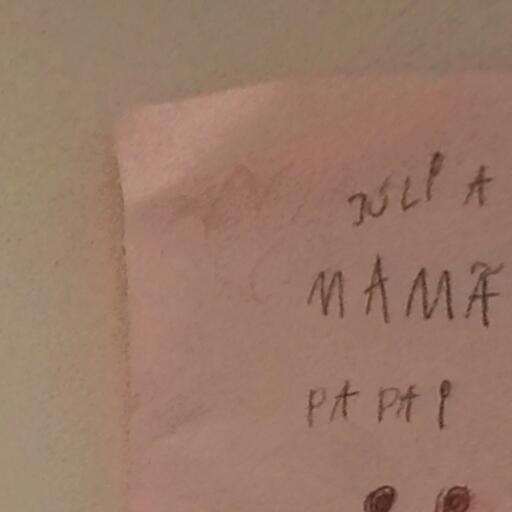 JULI A
MAMÃE
PAPAI